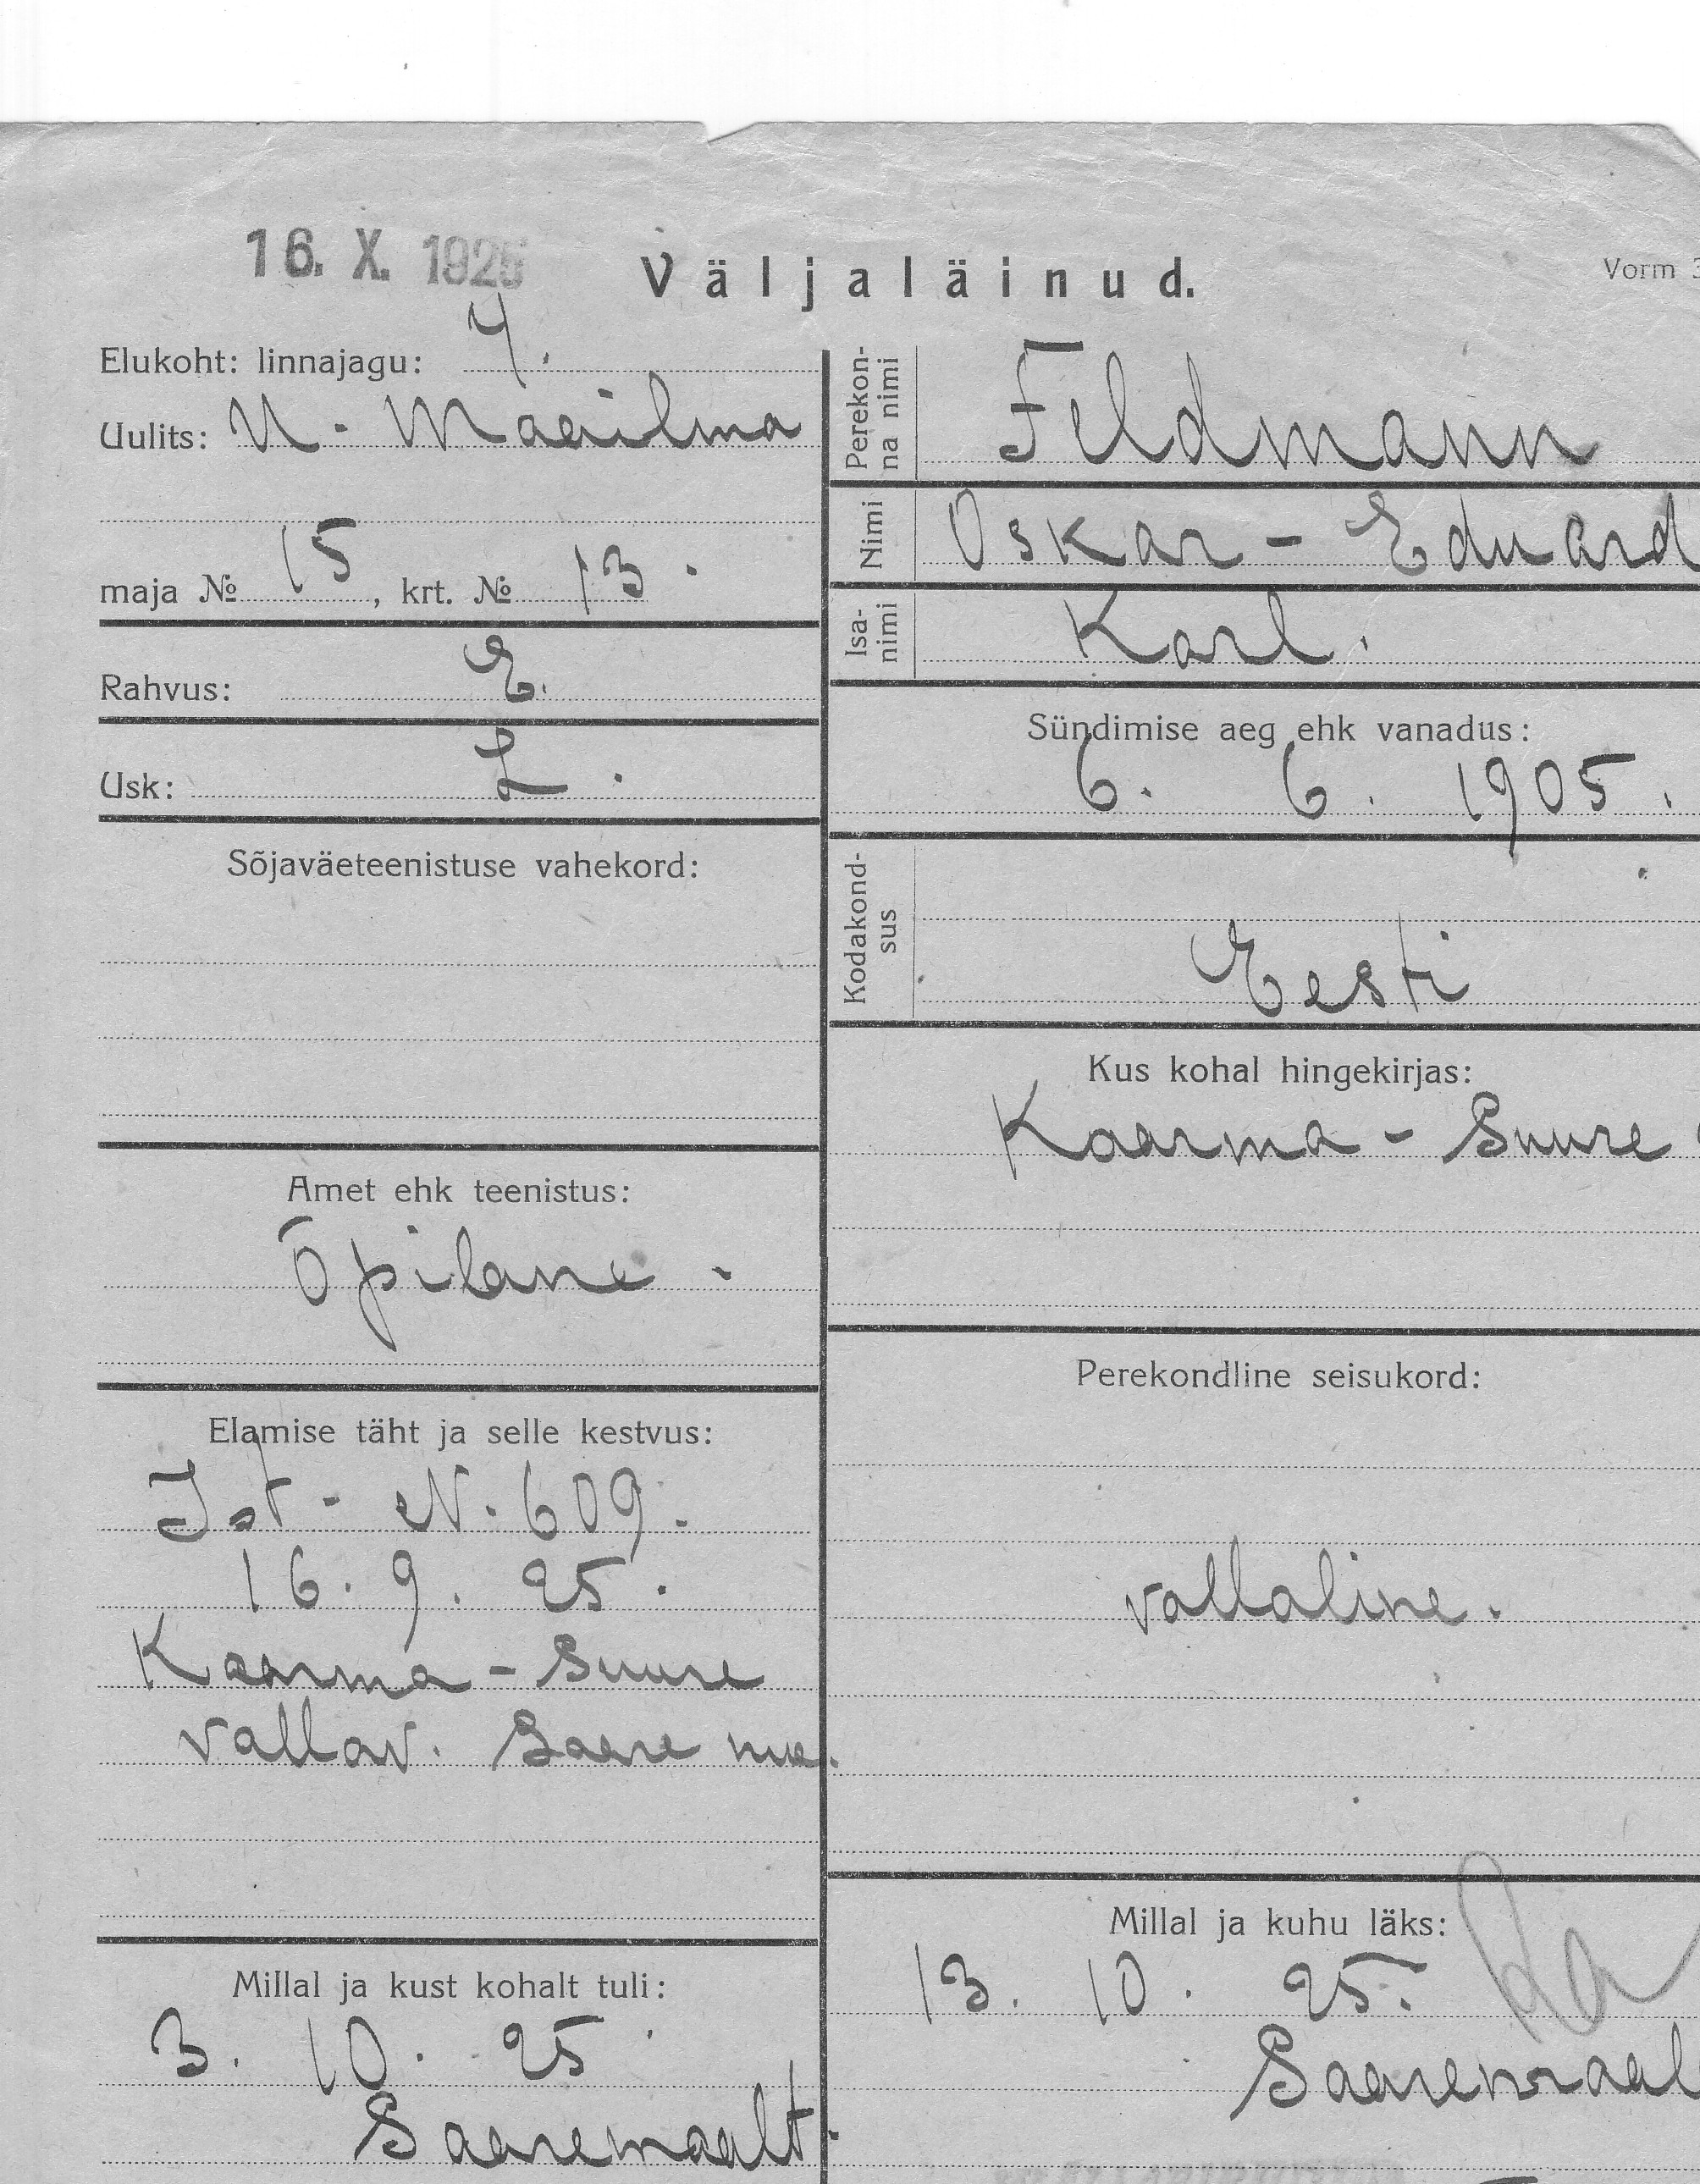 16. X. 1925
Väljaläinud.
Vorm 3
Elukoht: linnajagu: 4.
Uulits: U - Maailma
maja № 15, krt. № 13.
Rahvus: E.
Usk: L.
Sõjaväeteenistuse vahekord:
Amet ehk teenistus:
Õpilane.
Elamise täht ja selle kestvus:
Ist - N. 609.
16. 9. 25.
Kaarma - Suure
vallav. Saare mm.
Millal ja kust kohalt tuli:
3. 10. 25
Saaremaalt.
Perekon-
na nimi
Feldmann
Nimi
Oskar - Eduard
Isa-
nimi
Karl.
Sündimise aeg ehk vanadus:
6. 6. 1905.
Kodakond-
sus
Eesti
Kus kohal hingekirjas:
Kaarma - Suure
Perekondline seisukord:
vallaline.
Millal ja kuhu läks:
13. 10. 25.
Saaremaal